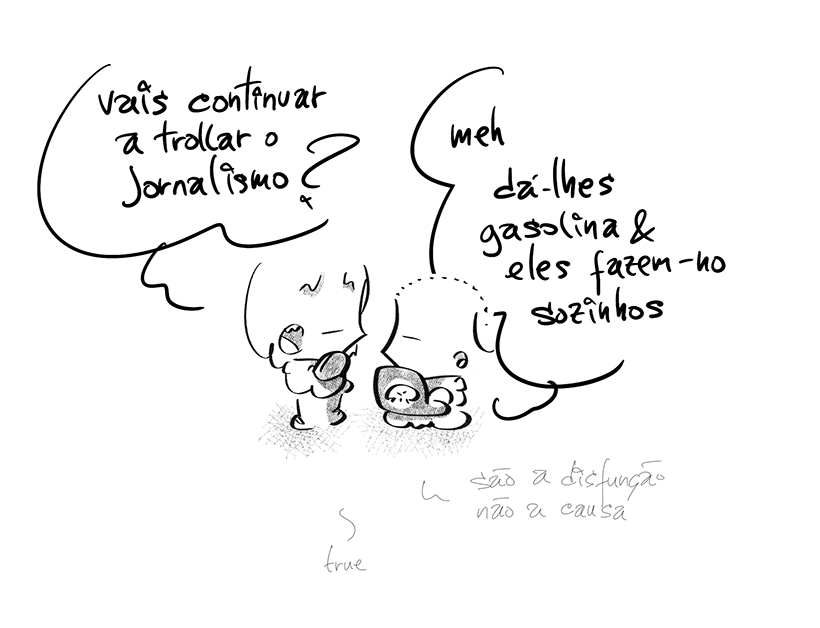 vais continuar
a trollar o
jornalismo?
meh
dá-lhes
gasolina &
eles fazem-no
sozinhos
são a disfunção
não a causa
true